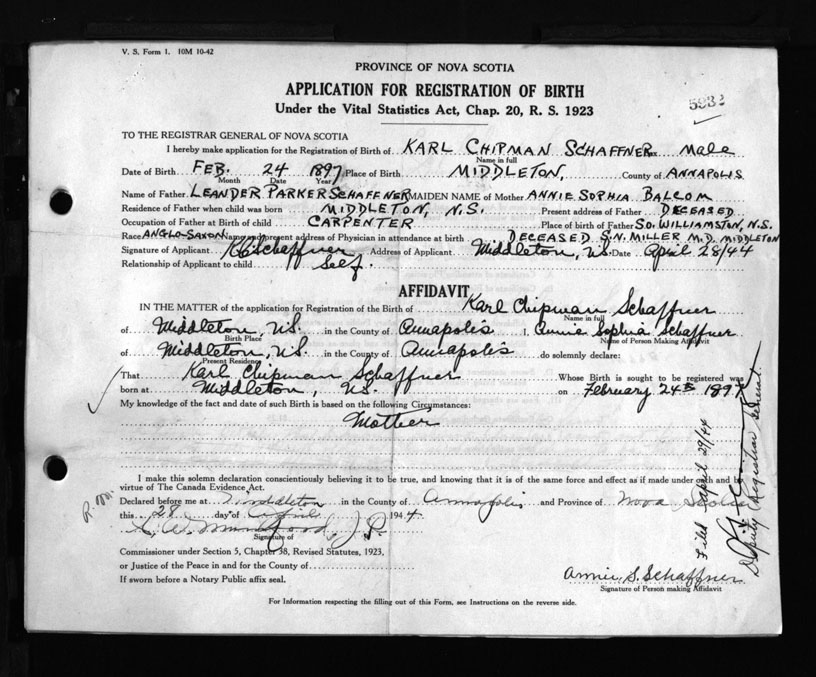 V. S. Form 1. 10M 10-42
PROVINCE OF NOVA SCOTIA
APPLICATION FOR REGISTRATION OF BIRTH
Under the Vital Statistics Act, Chap. 20, R. S. 1923
5932
TO THE REGISTRAR GENERAL OF NOVA SCOTIA
I hereby make application for the Registration of Birth of KARL CHIPMAN SCHAFFNER Male
Name in full
Date of Birth FEB. 24 1897 Place of Birth MIDDLETON, County of ANNAPOLIS
Month Date Year
Name of Father LEANDER PARKER SCHAFFNER MAIDEN NAME of Mother ANNIE SOPHIA BALCOM
Residence of Father when child was born MIDDLETON, N.S. Present address of Father DECEASED
Occupation of Father at Birth of child CARPENTER Place of birth of Father SO. WILLIAMSTON, N.S.
Race ANGLO-SAXON Name and present address of Physician in attendance at birth DECEASED S.N. MILLER M.D. MIDDLETON
Signature of Applicant KC Schaffner Address of Applicant Middleton, N.S. Date April 28/44
Relationship of Applicant to child Self.
AFFIDAVIT
IN THE MATTER of the application for Registration of the Birth of Karl Chipman Schaffner
Name in full
of Middleton, N.S. in the County of Annapolis I, Annie Sophia Schaffner
Birth Place Name of Person Making Affidavit
of Middleton, N.S. in the County of Annapolis do solemnly declare:
Present Residence
That Karl Chipman Schaffner Whose Birth is sought to be registered was
born at Middleton, N.S. on February 24th 1897
My knowledge of the fact and date of such Birth is based on the following Circumstances:
Mother
I make this solemn declaration conscientiously believing it to be true, and knowing that it is of the same force and effect as if made under oath and by
virtue of The Canada Evidence Act.
Declared before me at Middleton in the County of Annapolis and Province of Nova Scotia
this 28 day of April 1944
J.P.
Signature of
Commissioner under Section 5, Chapter 38, Revised Statutes, 1923,
or Justice of the Peace in and for the County of
If sworn before a Notary Public affix seal.
Annie S. Schaffner
Signature of Person making Affidavit
For Information respecting the filling out of this Form, see Instructions on the reverse side.
Filed April 29/44
Deputy Registrar General.